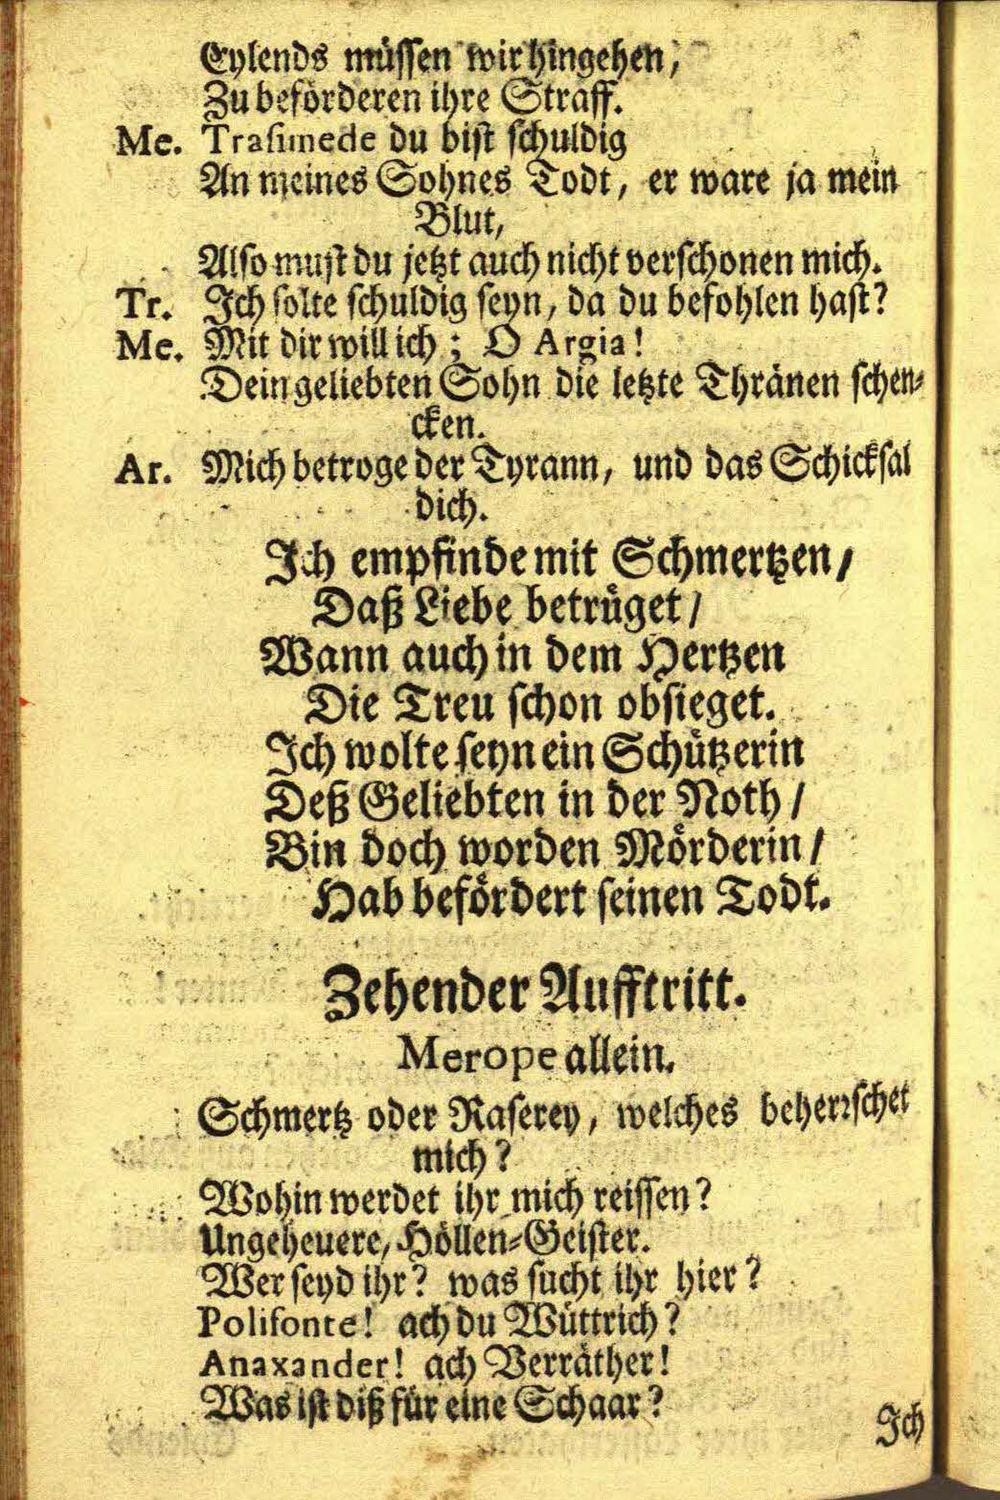 Eylends müssen wir hingehen,
Zu beförderen ihre Straff.
Me. Trasimede du bist schuldig
An meines Sohnes Todt, er ware ja mein
Blut,
Also must du jetzt auch nicht verschonen mich.
Tr. Ich solte schuldig seyn, da du befohlen hast?
Me. Mit dir will ich ; O Argia!
Dein geliebten Sohn die letzte Thränen schen-
cken.
Ar. Mich betroge der Tyrann, und das Schicksal
dich.
Ich empfinde mit Schmertzen /
Daß Liebe betrüget /
Wann auch in dem Hertzen
Die Treu schon obsieget.
Ich wolte seyn ein Schützerin
Deß Geliebten in der Noth /
Bin doch worden Mörderin /
Hab befördert seinen Todt.
Zehender Aufftritt.
Merope allein.
Schmertz oder Raserey, welches beherrschet
mich?
Wohin werdet ihr mich reissen?
Ungeheuere, Höllen-Geister.
Wer seyd ihr? was sucht ihr hier?
Polifonte! ach du Wüttrich?
Anaxander! ach Verräther!
Was ist diß für eine Schaar?
Ich